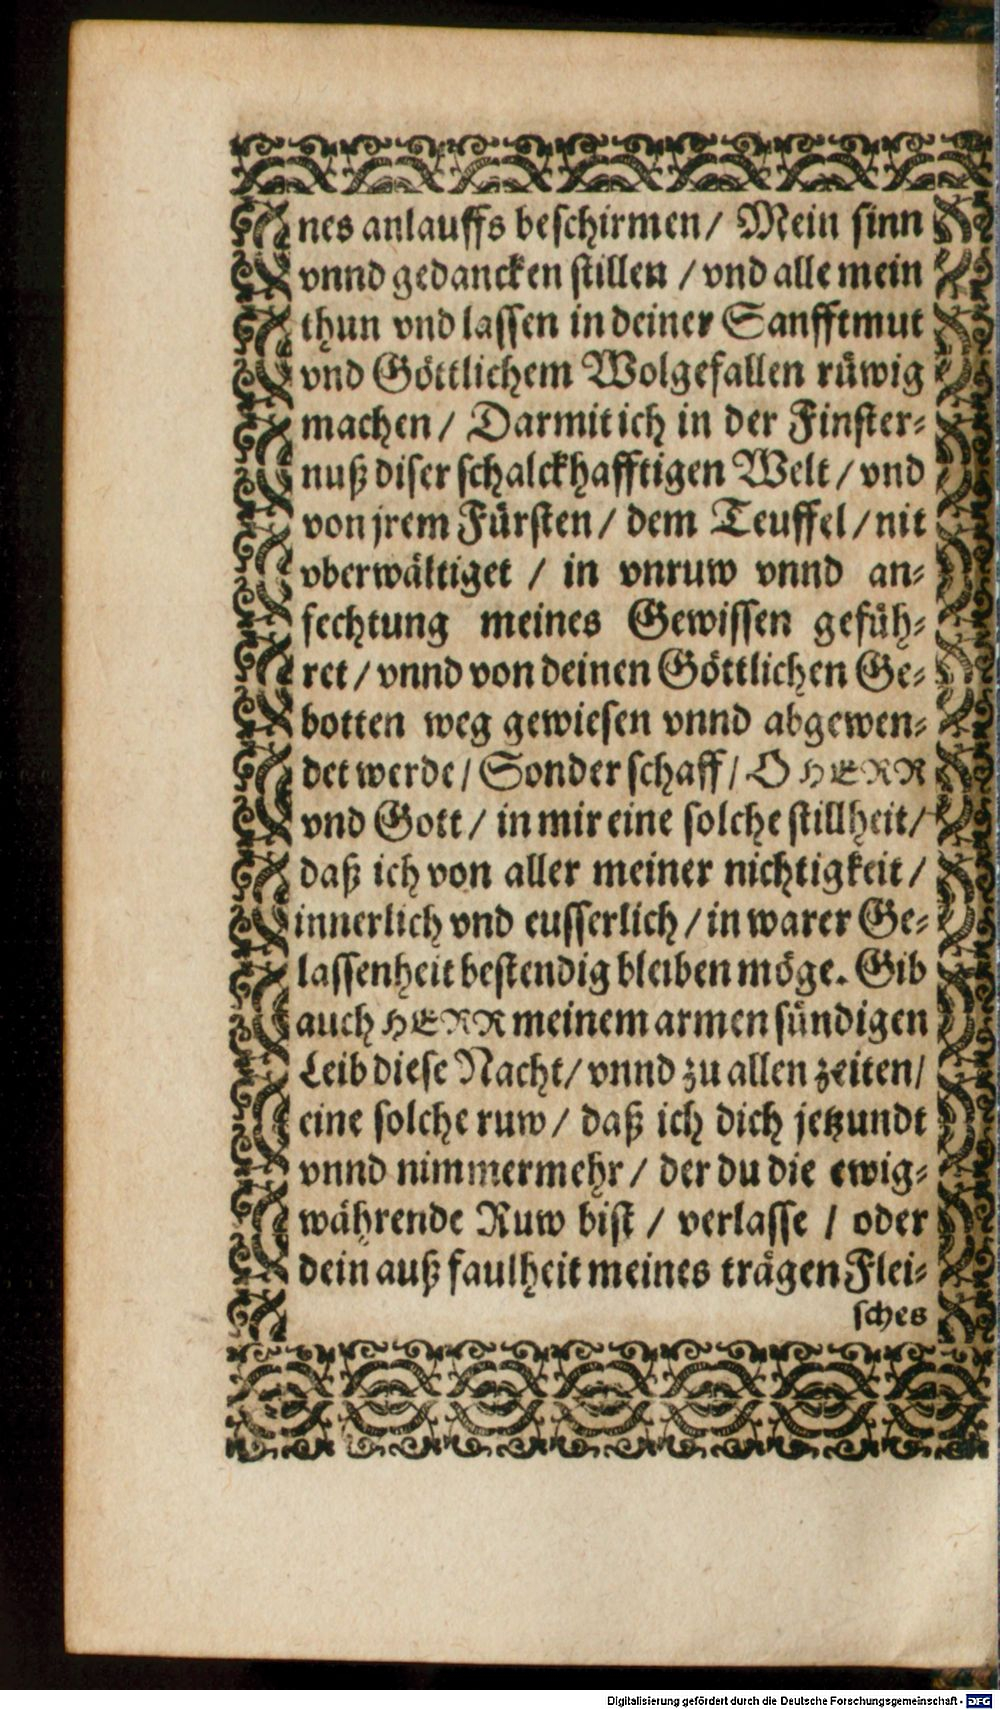 nes anlauffs beschirmen/ Mein sinn
vnnd gedancken stillen / vnd alle mein
thun vnd lassen in deiner Sanfftmut
vnd Göttlichem Wolgefallen rüwig
machen/ Darmit ich in der Finster-
nuß diser schalckhafftigen Welt / vnd
von jrem Fürsten/ dem Teuffel / nit
vberwältiget / in vnruw vnnd an-
fechtung meines Gewissen gefüh-
ret / vnnd von deinen Göttlichen Ge-
botten weg gewiesen vnnd abgewen-
det werde/ Sonder schaff/ O HERR
vnd Gott / in mir eine solche stillheit/
daß ich von aller meiner nichtigkeit /
innerlich vnd eusserlich / in warer Ge-
lassenheit bestendig bleiben möge. Gib
auch HERR meinem armen sündigen
Leib diese Nacht/ vnnd zu allen zeiten/
eine solche ruw / daß ich dich jetzundt
vnnd nimmermehr / der du die ewig-
währende Ruw bist / verlasse / oder
dein auß faulheit meines trägen Flei-
sches
Digitalisierung gefördert durch die Deutsche Forschungsgemeinschaft - DFG